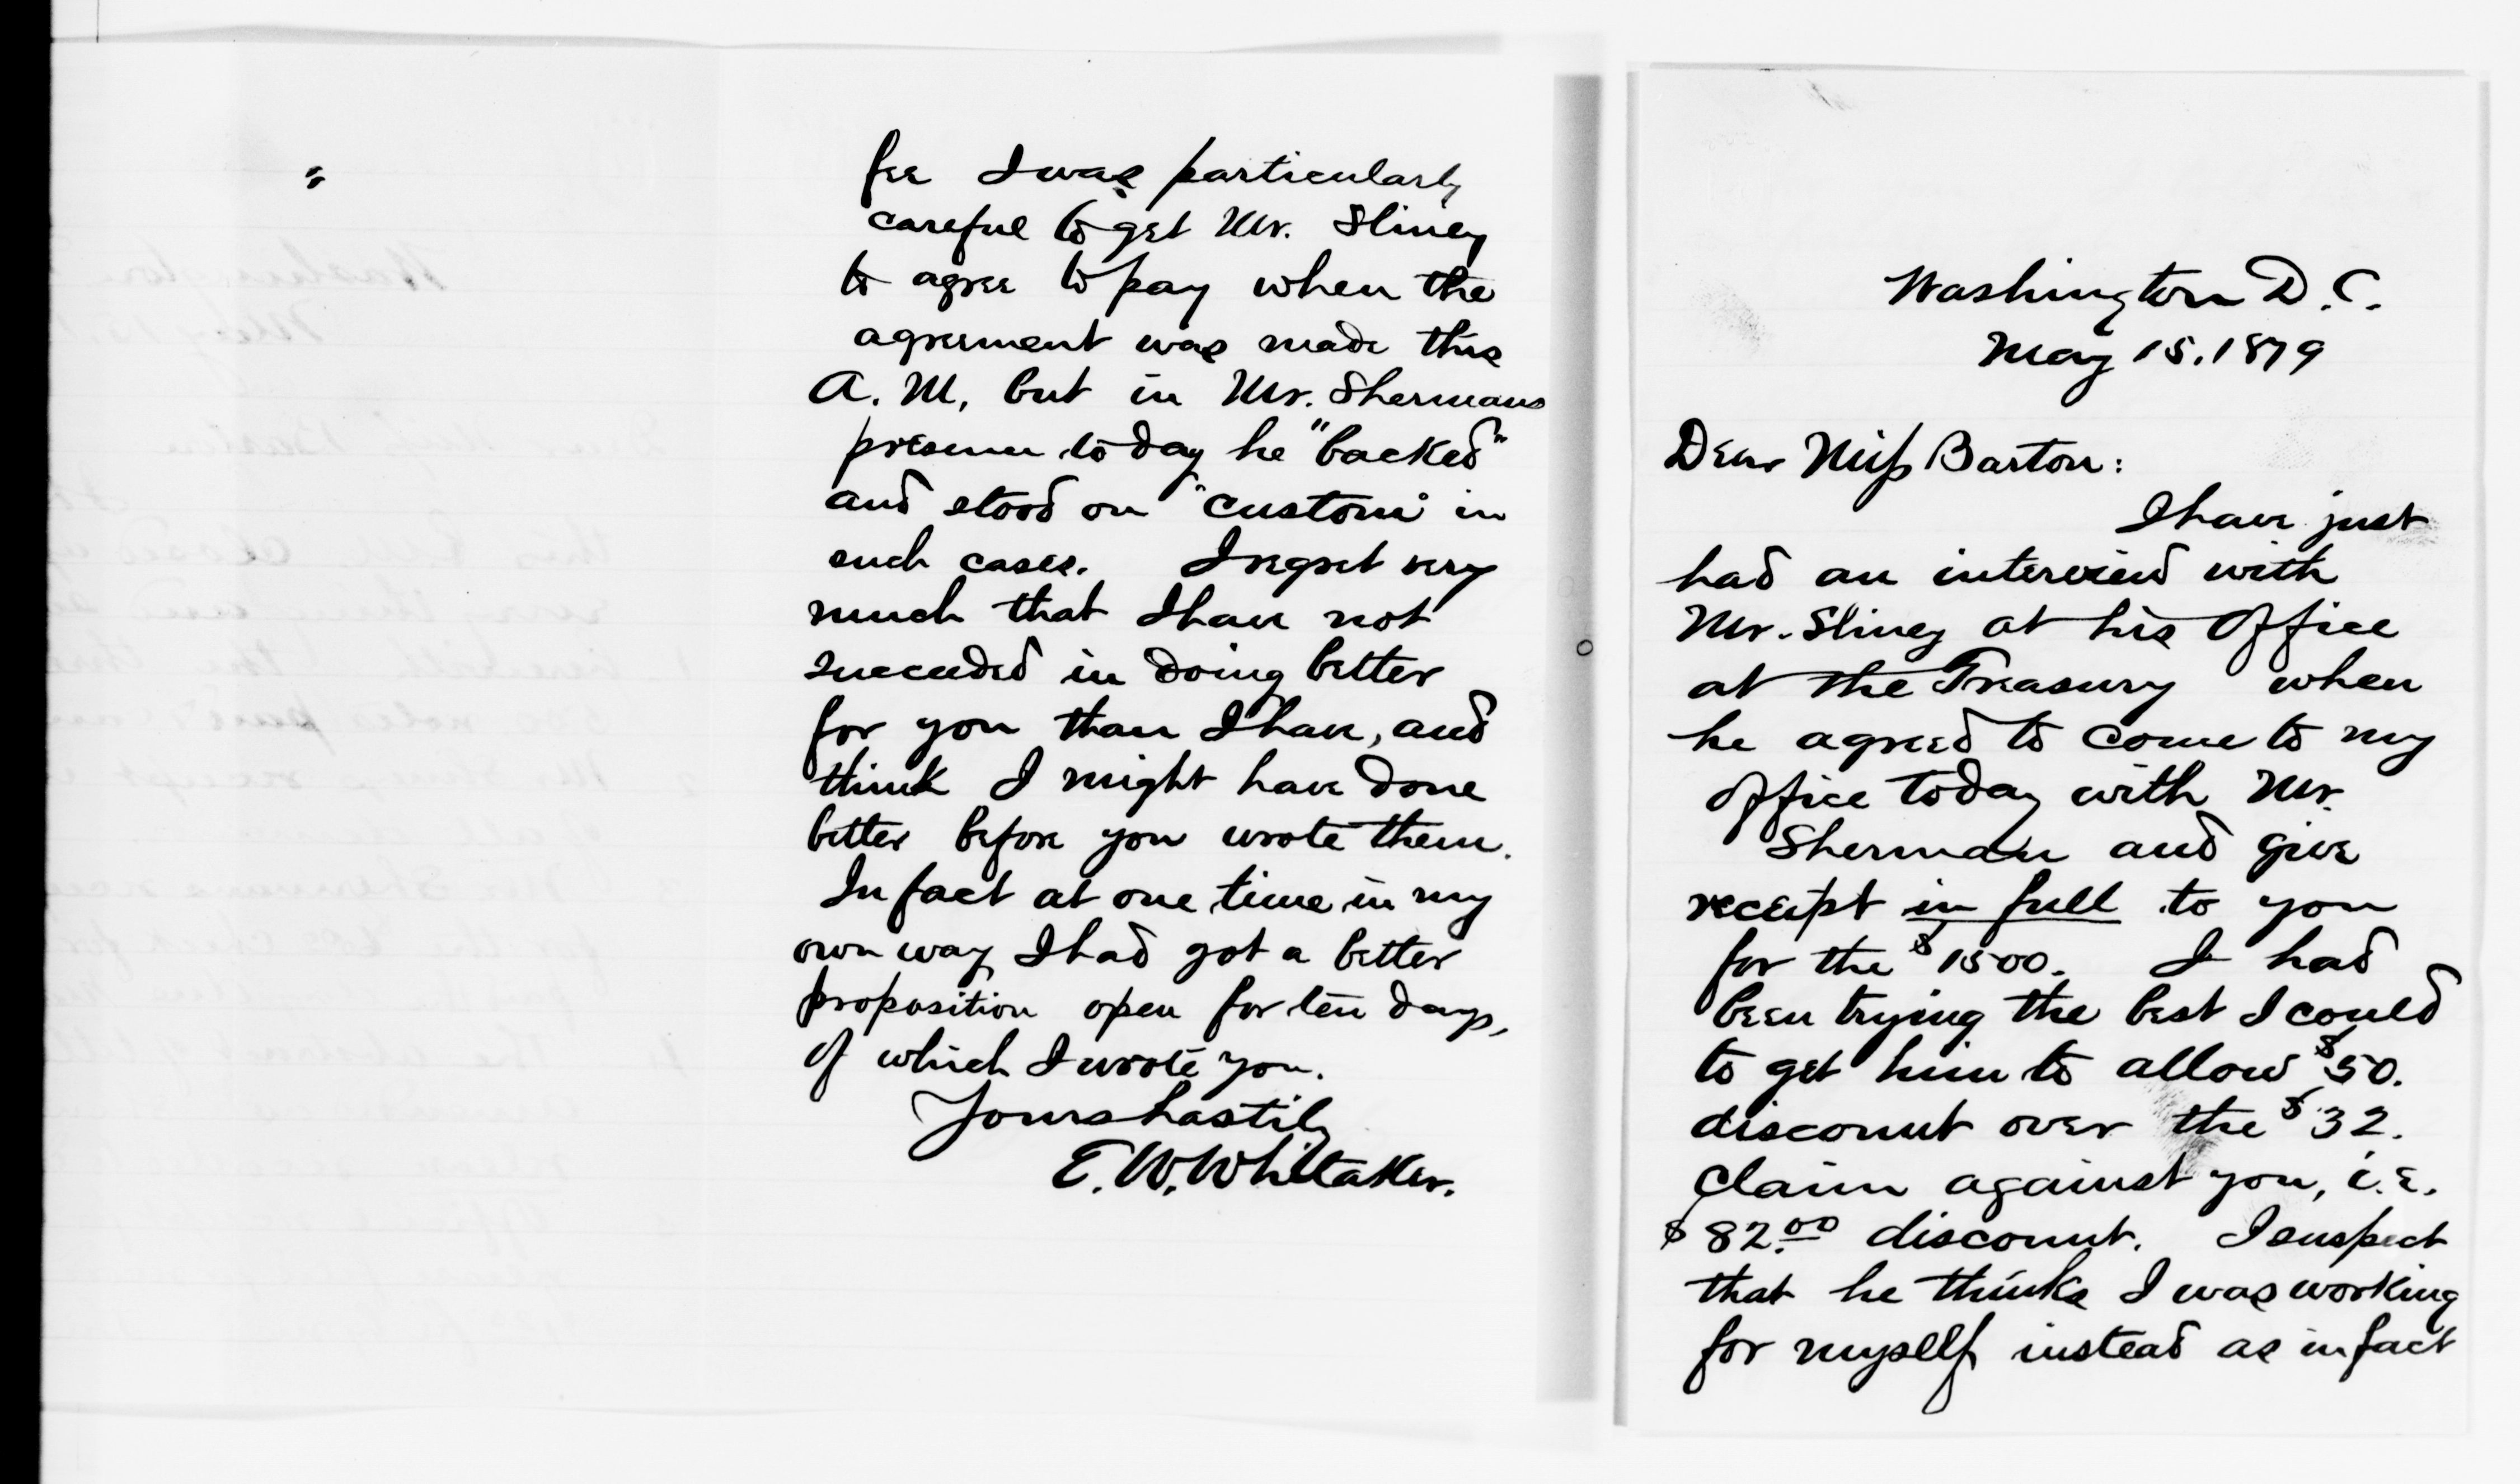 fee I was particularly
careful to get Mr. Sliney
to agree to pay when the
agreement was made this
A. M, but in Mr. Shermans
presence to day he "backed"
and stood on "custom" in
such cases. I regret very
much that I have not
succeeded in doing better
for you than I have, and
think I might have done
better before you wrote them.
In fact at one time in my
own way I had got a better
proposition open for ten days,
of which I wrote you.
Yours hastily
E. W. Whitaker.
Washington D. C.
May 15, 1879
Dear Miss Barton:
I have just
had an interview with
Mr. Sliney at his office
at the Treasury when
he agreed to come to my
office today with Mr.
Sherman and give
receipt in full to you
for the $1500. I had
been trying the best I could
to get him to allow $50.
discount over the $32.
claim against you, i.e.
$82.00 discount. I suspect
that he thinks I was working
for myself instead as in fact